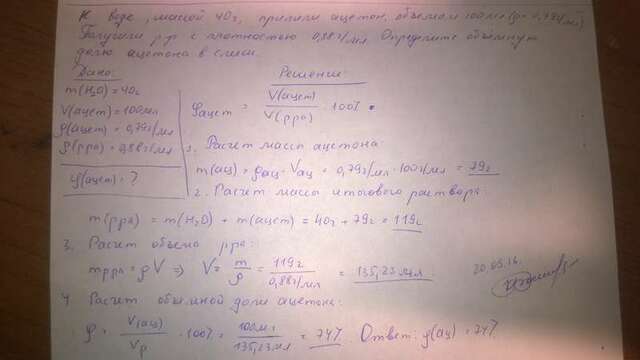 К воде, массой 40г, прилили ацетон, объемом 100мл (ρ=0,79г/мл)
Получили р-р с плотностью 0,88г/мл. Определите объемную
долю ацетона в смеси.
Дано:
m(H2O)=40г
V(ацет)=100мл
ρ(ацет)=0,79г/мл
ρ(рра)=0,88г/мл
φ(ацет)-?
Решение:
φацет = V(ацет)/V(рра) · 100%
1. Расчет массы ацетона
m(ац) = ρац · Vац = 0,79г/мл · 100г/мл = 79г
2. Расчет массы итогового раствора:
m(рра) = m(H2O) + m(ацет) = 40г + 79г = 119г
3. Расчет объема рра:
mрра = ρV => V = m/ρ = 119г/0,88г/мл = 135,23мл
4 Расчет объемной доли ацетона:
φ = V(ац)/Vр · 100% = 100мл/135,23мл = 74% Ответ: φ(ац) = 74%
20.05.16.